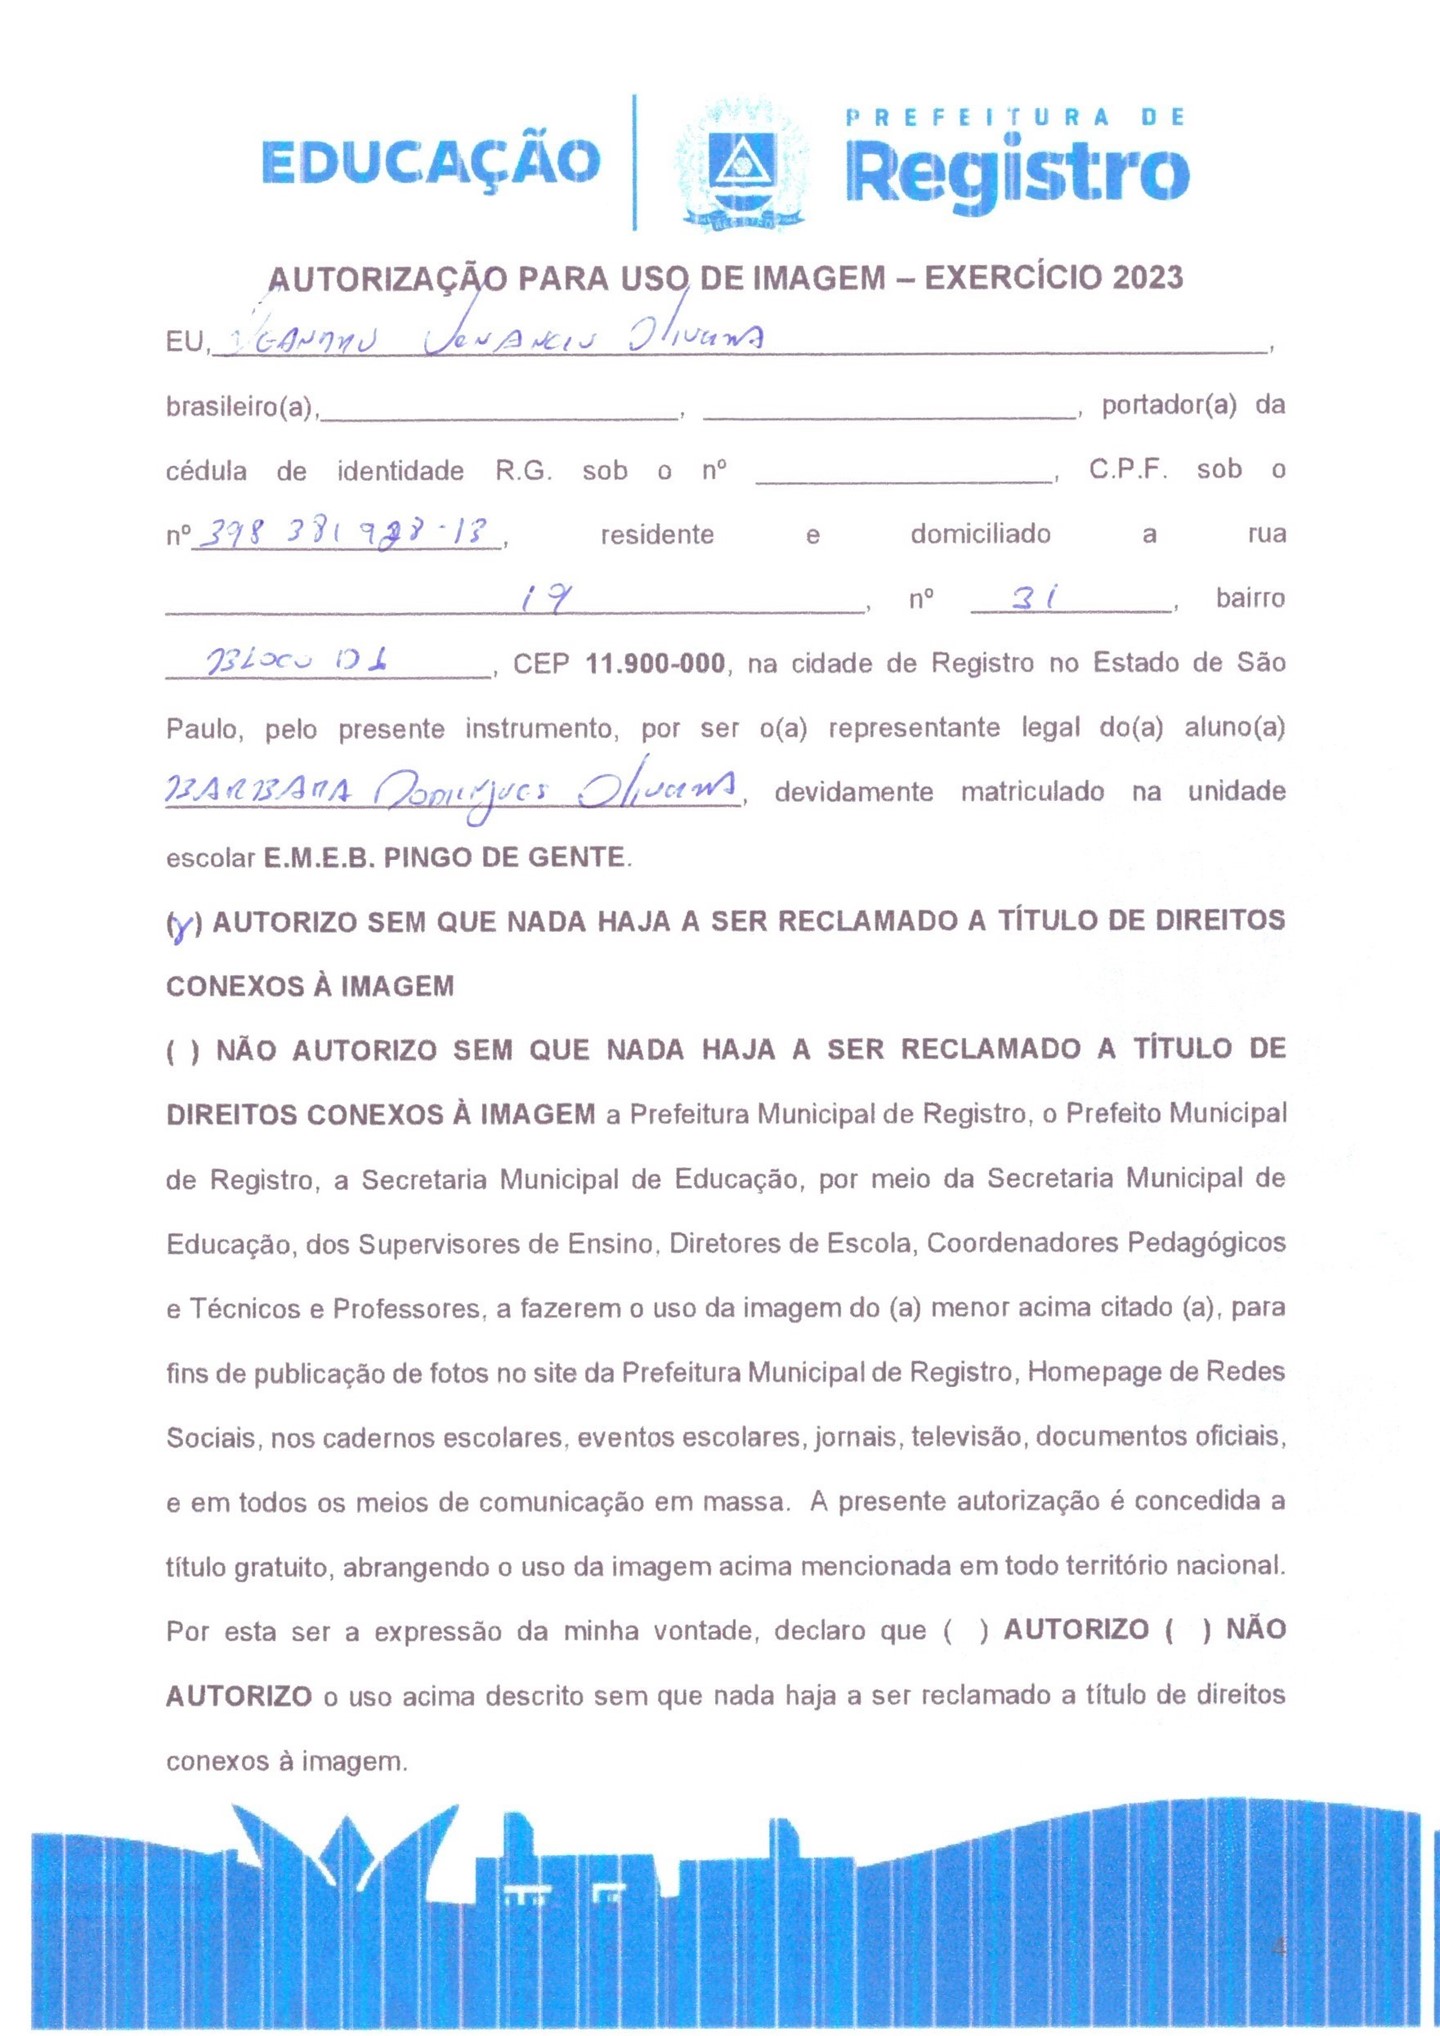 EDUCAÇÃO
PREFEITURA DE
Registro
AUTORIZAÇÃO PARA USO DE IMAGEM – EXERCÍCIO 2023
EU, Venancio Oliveira,
brasileiro(a), , portador(a) da
cédula de identidade R.G. sob o nº , C.P.F. sob o
nº 398 381 928-13, residente e domiciliado a rua
19, nº 31, bairro
Bloco D1, CEP 11.900-000, na cidade de Registro no Estado de São
Paulo, pelo presente instrumento, por ser o(a) representante legal do(a) aluno(a)
BARBARA Domingues Oliveira, devidamente matriculado na unidade
escolar E.M.E.B. PINGO DE GENTE.
(x) AUTORIZO SEM QUE NADA HAJA A SER RECLAMADO A TÍTULO DE DIREITOS
CONEXOS À IMAGEM
( ) NÃO AUTORIZO SEM QUE NADA HAJA A SER RECLAMADO A TÍTULO DE
DIREITOS CONEXOS À IMAGEM a Prefeitura Municipal de Registro, o Prefeito Municipal
de Registro, a Secretaria Municipal de Educação, por meio da Secretaria Municipal de
Educação, dos Supervisores de Ensino, Diretores de Escola, Coordenadores Pedagógicos
e Técnicos e Professores, a fazerem o uso da imagem do (a) menor acima citado (a), para
fins de publicação de fotos no site da Prefeitura Municipal de Registro, Homepage de Redes
Sociais, nos cadernos escolares, eventos escolares, jornais, televisão, documentos oficiais,
e em todos os meios de comunicação em massa. A presente autorização é concedida a
título gratuito, abrangendo o uso da imagem acima mencionada em todo território nacional.
Por esta ser a expressão da minha vontade, declaro que ( ) AUTORIZO ( ) NÃO
AUTORIZO o uso acima descrito sem que nada haja a ser reclamado a título de direitos
conexos à imagem.